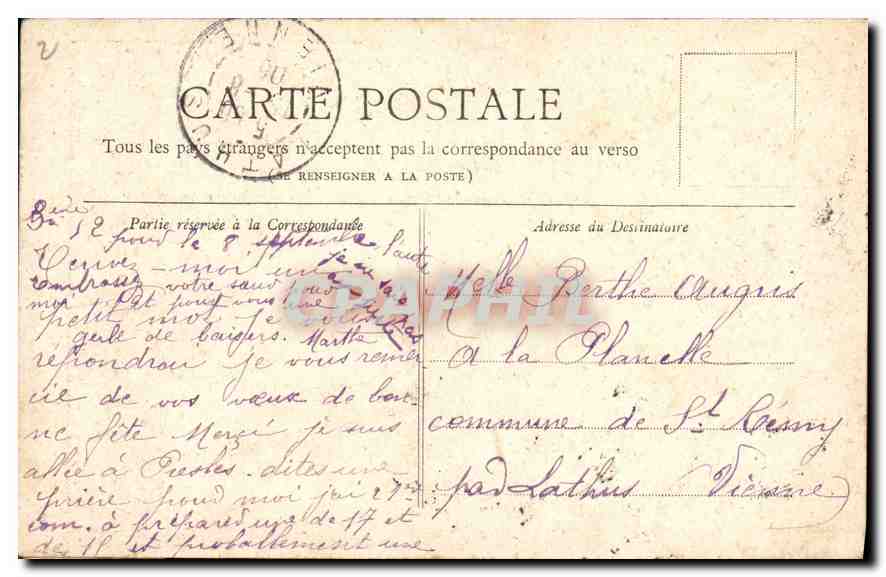 2
LATHUS VIENNE
CARTE POSTALE
Tous les pays étrangers n'acceptent pas la correspondance au verso
(SE RENSEIGNER A LA POSTE)
Partie réservée à la Correspondance
12 pour le 8 septembre l'autre
Ecrivez-moi un
Embrassez votre sœur pour
moi Et pour vous une
petit mot je vous
gerbe de baisers. Marthe
répondrau je vous remer
cie de vos vœux de bon
ne fête Merçi je suis
allée à Presles. dites une
prière pour moi j'ai 2
com. à préparer une de 17 et
de 18 et proballement une
je ne sais pas
Adresse du Destinataire
Melle Berthe Augris
a la Planelle
commune de St Rémy
par Lathus Vienne
CPAPHIL